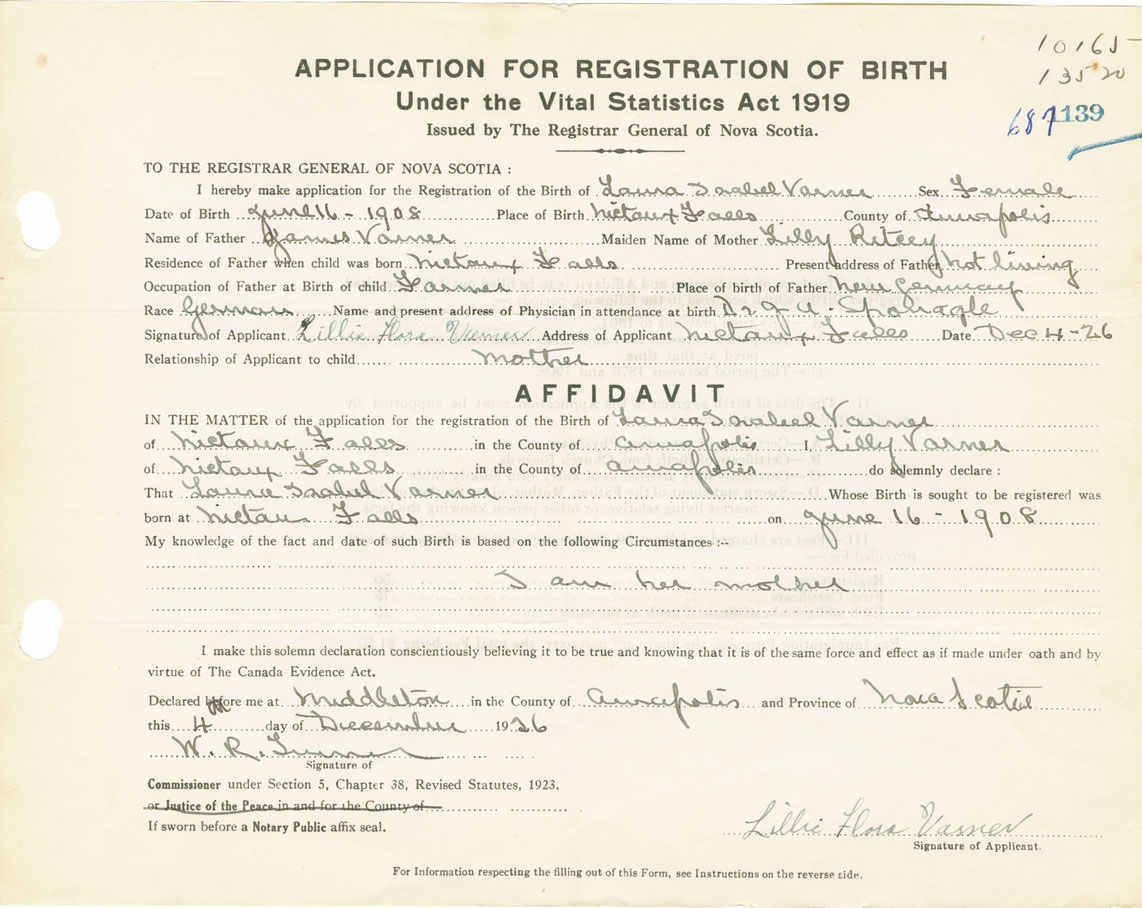 10165
13520
687 1139
APPLICATION FOR REGISTRATION OF BIRTH
Under the Vital Statistics Act 1919
Issued by The Registrar General of Nova Scotia.
TO THE REGISTRAR GENERAL OF NOVA SCOTIA :
I hereby make application for the Registration of the Birth of Laura Isabel Varner Sex Female
Date of Birth June 16 - 1908 Place of Birth Nictaux Falls County of Annapolis
Name of Father James Varner Maiden Name of Mother Lilly Ritcey
Residence of Father when child was born Nictaux Falls Present address of Father Not living
Occupation of Father at Birth of child Farmer Place of birth of Father New Germany
Race German Name and present address of Physician in attendance at birth Dr J. A. Sponagle
Signature of Applicant Lillie Flora Varner Address of Applicant Nictaux Falls Date Dec 4-26
Relationship of Applicant to child mother
AFFIDAVIT
IN THE MATTER of the application for the registration of the Birth of Laura Isabel Varner
of Nictaux Falls in the County of Annapolis I, Lilly Varner
of Nictaux Falls in the County of Annapolis do solemnly declare :
That Laura Isabel Varner Whose Birth is sought to be registered was
born at Nictau Falls on June 16 - 1908
My knowledge of the fact and date of such Birth is based on the following Circumstances :--
I am her mother
I make this solemn declaration conscientiously believing it to be true and knowing that it is of the same force and effect as if made under oath and by
virtue of The Canada Evidence Act.
Declared before me at Middleton in the County of Annapolis and Province of Nova Scotia
this 4 day of December 1926
W. R. Turner
Signature of
Commissioner under Section 5, Chapter 38, Revised Statutes, 1923.
or Justice of the Peace in and for the County of
If sworn before a Notary Public affix seal.
Lillie Flora Varner
Signature of Applicant.
For Information respecting the filling out of this Form, see Instructions on the reverse side.